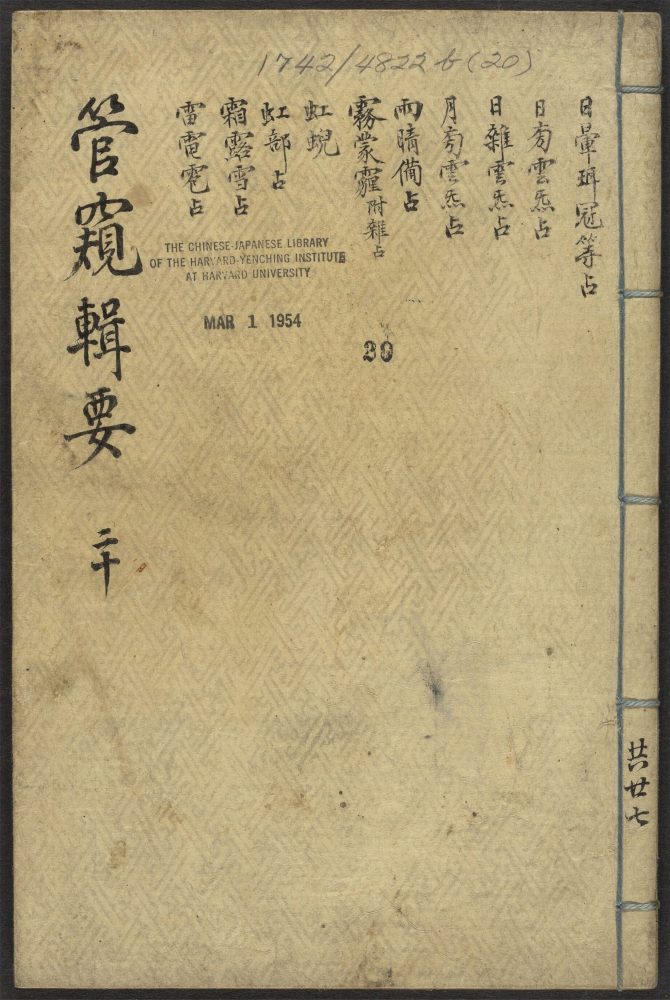 1742/4822b(20)
日暈珥冠等占
日旁雲炁占
日雜雲炁占
月旁雲炁占
雨晴備占
霧蒙霾附雜占
虹蜺
虹部占
霜露雪占
雷電雹占
管窺輯要 二十
THE CHINESE-JAPANESE LIBRARY
OF THE HARVARD-YENCHING INSTITUTE
AT HARVARD UNIVERSITY
MAR 1 1954
20
共廿七